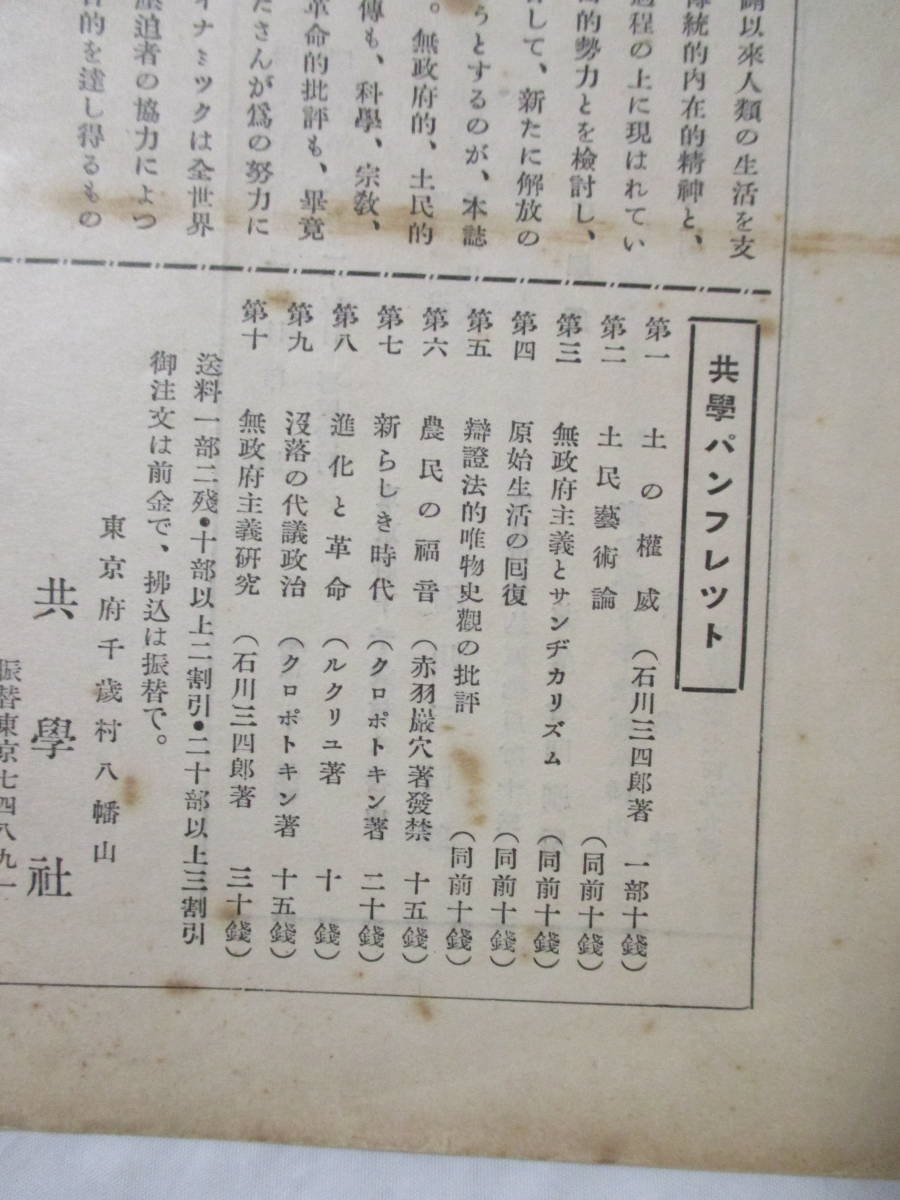 以來人類の生活を支
傳統的内在的精神と、
過程の上に現はれてい
的勢力とを檢討し、
して、新たに解放の
うとするのが、本誌
。無政府的、土民的
傳も、科學、宗敎、
革命的批評も、畢竟
たさんが爲の努力に
イナミツクは全世界
壓迫者の協力によつ
的を達し得るもの
共學パンフレツト
第一 土の權威 (石川三四郎著 一部十錢)
第二 土民藝術論 (同前十錢)
第三 無政府主義とサンヂカリズム (同前十錢)
第四 原始生活の囘復 (同前十錢)
第五 辯證法的唯物史觀の批評 (同前十錢)
第六 農民の福音 (赤羽巖穴著發禁 十五錢)
第七 新らしき時代 (クロポトキン著 二十錢)
第八 進化と革命 (ルクリユ著 十錢)
第九 沒落の代議政治 (クロポトキン著 十五錢)
第十 無政府主義硏究 (石川三四郎著 三十錢)
送料一部二残・十部以上二割引・二十部以上三割引
御注文は前金で、拂込は振替で。
東京府千歲村八幡山
共學社
振替東京七四八九一